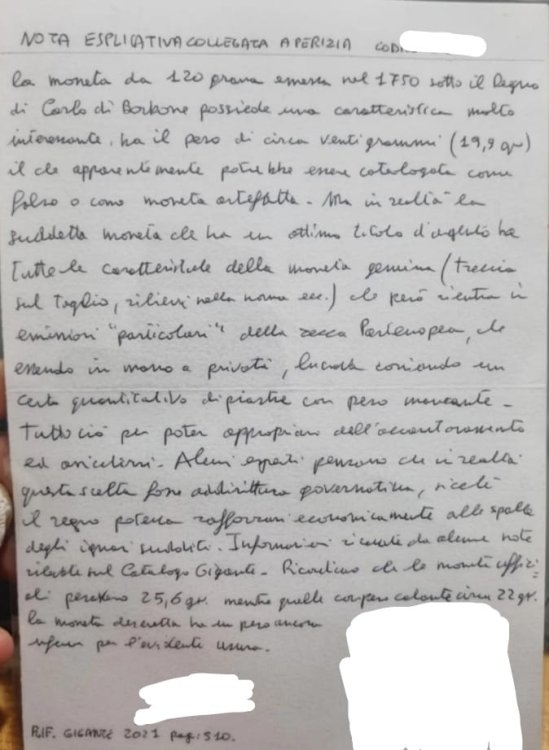 NOTA ESPLICATIVA COLLEGATA A PERIZIA CODICE
La moneta da 120 grana emessa nel 1750 sotto il Regno
di Carlo di Borbone possiede una caratteristica molto
interessante. ha il peso di circa venti grammi (19,9 gr)
il che apparentemente potrebbe essere catalogata come
falso o come moneta artefatta - Ma in realtà la
suddetta moneta che ha un ottimo titolo d'argento ha
tutte le caratteristiche della moneta genuina (treccia
sul taglio, rilievi nella norma ecc.) che però rientra in
emissioni "particolari" della zecca Partenopea, che
essendo in mano a privati, lucrava coniando un
certo quantitativo di piastre con peso mancante -
Tutto ciò per poter appropriarsi dell'accantonamento
ed arricchirsi - Alcuni esperti pensano che in realtà
questa scelta fosse addirittura governativa, sicché
il regno poteva rafforzarsi economicamente alle spalle
degli ignari sudditi. Informazioni ricavate da alcune note
rilevate sul Catalogo Gigante - Ricordiamo che le monete uffizi=
ali pesavano 25,6 gr. mentre quelle con peso calante circa 22 gr.
la moneta descritta ha un peso ancora
inferiore per l'evidente usura.
RIF. GIGANTE 2021 pag: 510.